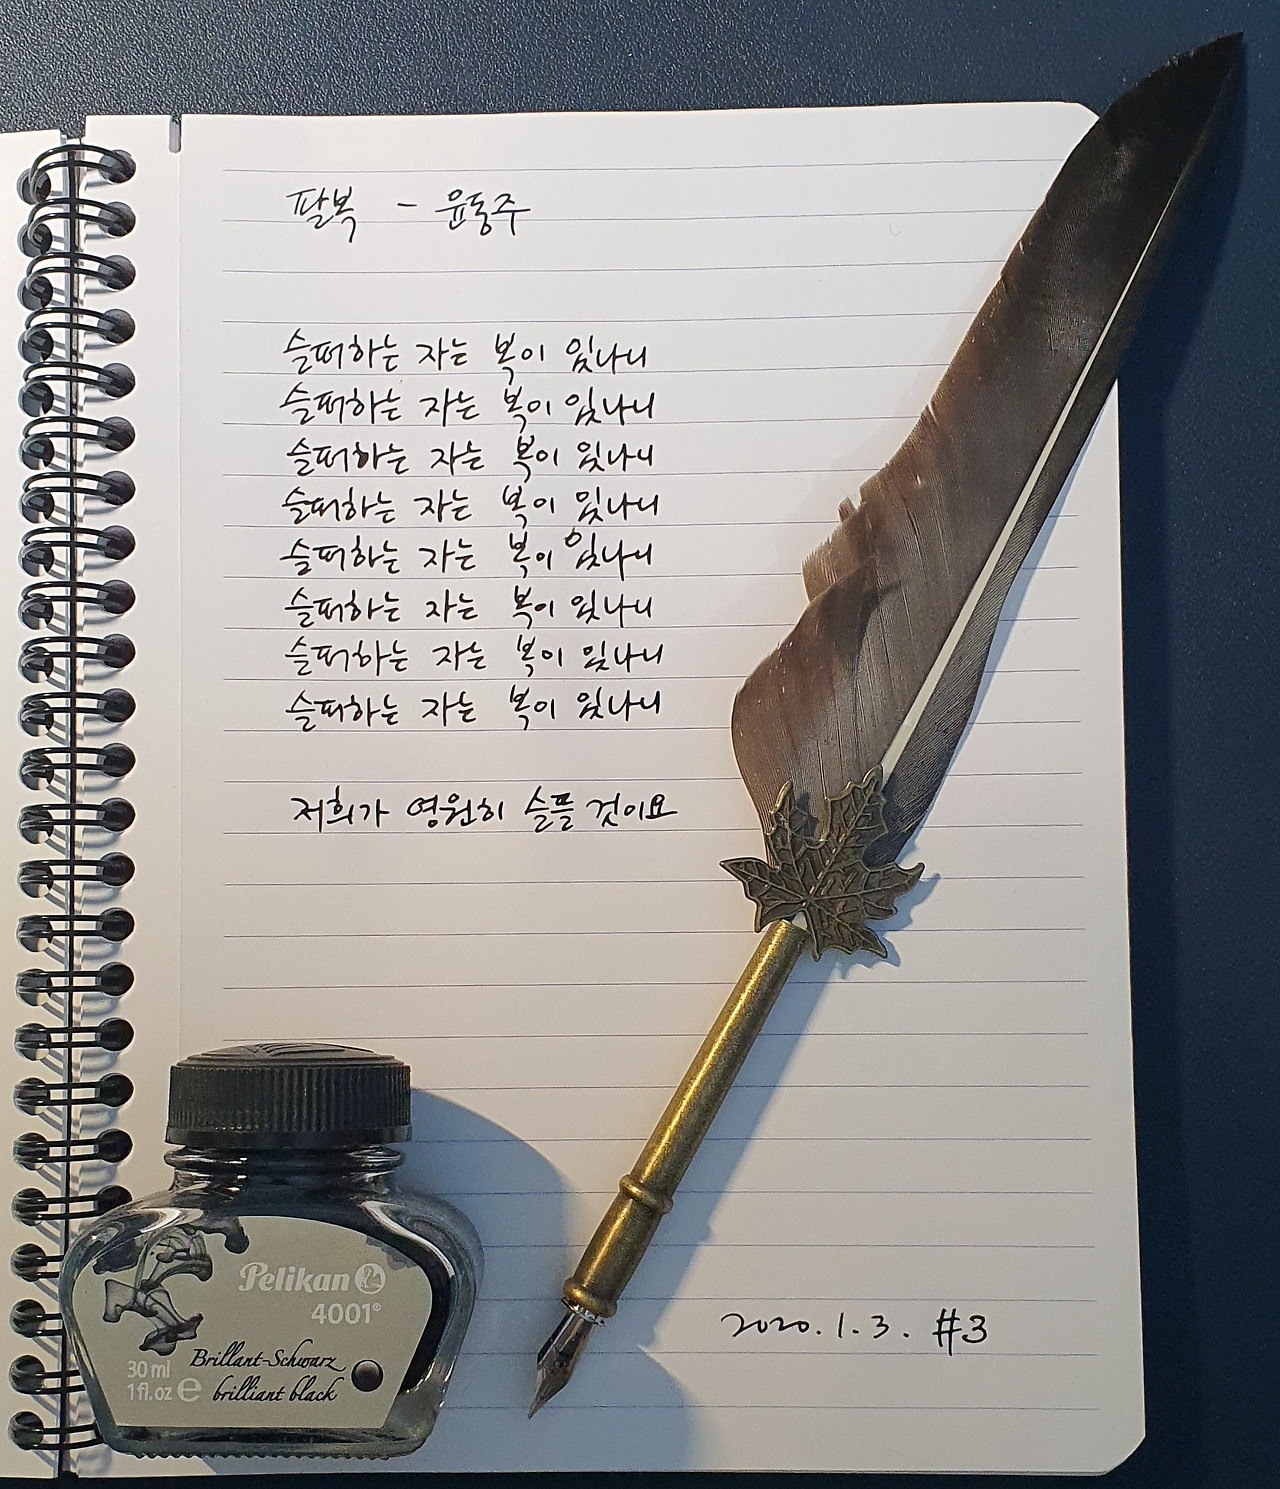 팔복 - 윤동주
슬퍼하는 자는 복이 있나니
슬퍼하는 자는 복이 있나니
슬퍼하는 자는 복이 있나니
슬퍼하는 자는 복이 있나니
슬퍼하는 자는 복이 있나니
슬퍼하는 자는 복이 있나니
슬퍼하는 자는 복이 있나니
슬퍼하는 자는 복이 있나니
저희가 영원히 슬플 것이요
Pelikan
4001®
Brillant-Schwarz
brilliant black
30 ml
1 fl. oz e
2020. 1. 3. #3